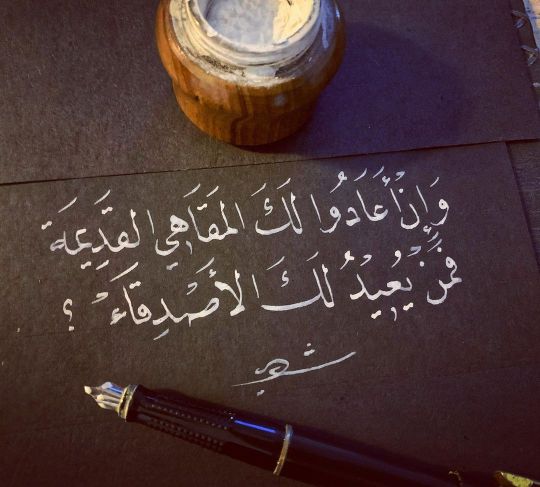 وَإِنْ أَعَادُوا لَكَ المَقَاهِي القَدِيمَة
فَمَنْ يُعِيدُ لَكَ الأَصْدِقَاءَ ؟